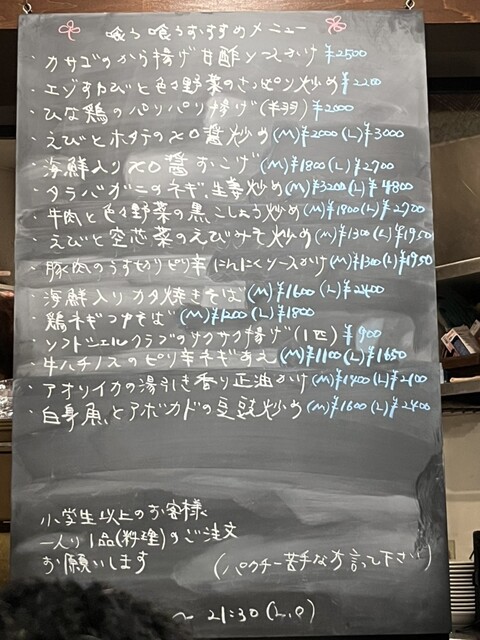 喰う喰うおすすめメニュー
・カサゴのから揚げ甘酢ソースかけ ¥2500
・エゾあわびと色々野菜のさっぱり炒め ¥2200
・ひな鶏のパリパリ揚げ(半羽) ¥2000
・えびとホタテのXO醤炒め (M)¥2000 (L)¥3000
・海鮮入りXO醤おこげ (M)¥1800 (L)¥2700
・タラバガニのネギ、生姜炒め (M)¥3200 (L)¥4800
・牛肉と色々野菜の黒こしょう炒め (M)¥1800 (L)¥2700
・えびと空芯菜のえびみそ炒め (M)¥1300 (L)¥1950
・豚肉のうす切りピリ辛にんにくソースかけ (M)¥1300 (L)¥1950
・海鮮入りカタ焼きそば (M)¥1600 (L)¥2400
・鶏ネギつゆそば (M)¥1200 (L)¥1800
・ソフトシェルクラブのサクサク揚げ(1匹) ¥900
・牛ハチノスのピリ辛ネギあえ (M)¥1100 (L)¥1650
・アオリイカの湯引き香り正油かけ (M)¥1400 (L)¥2100
・白身魚とアボカドの豆豉炒め (M)¥1600 (L)¥2400
小学生以上のお客様、
一人り1品(料理)のご注文
お願いします
(パクチー苦手な方言って下さい)
～21:30(L.O)